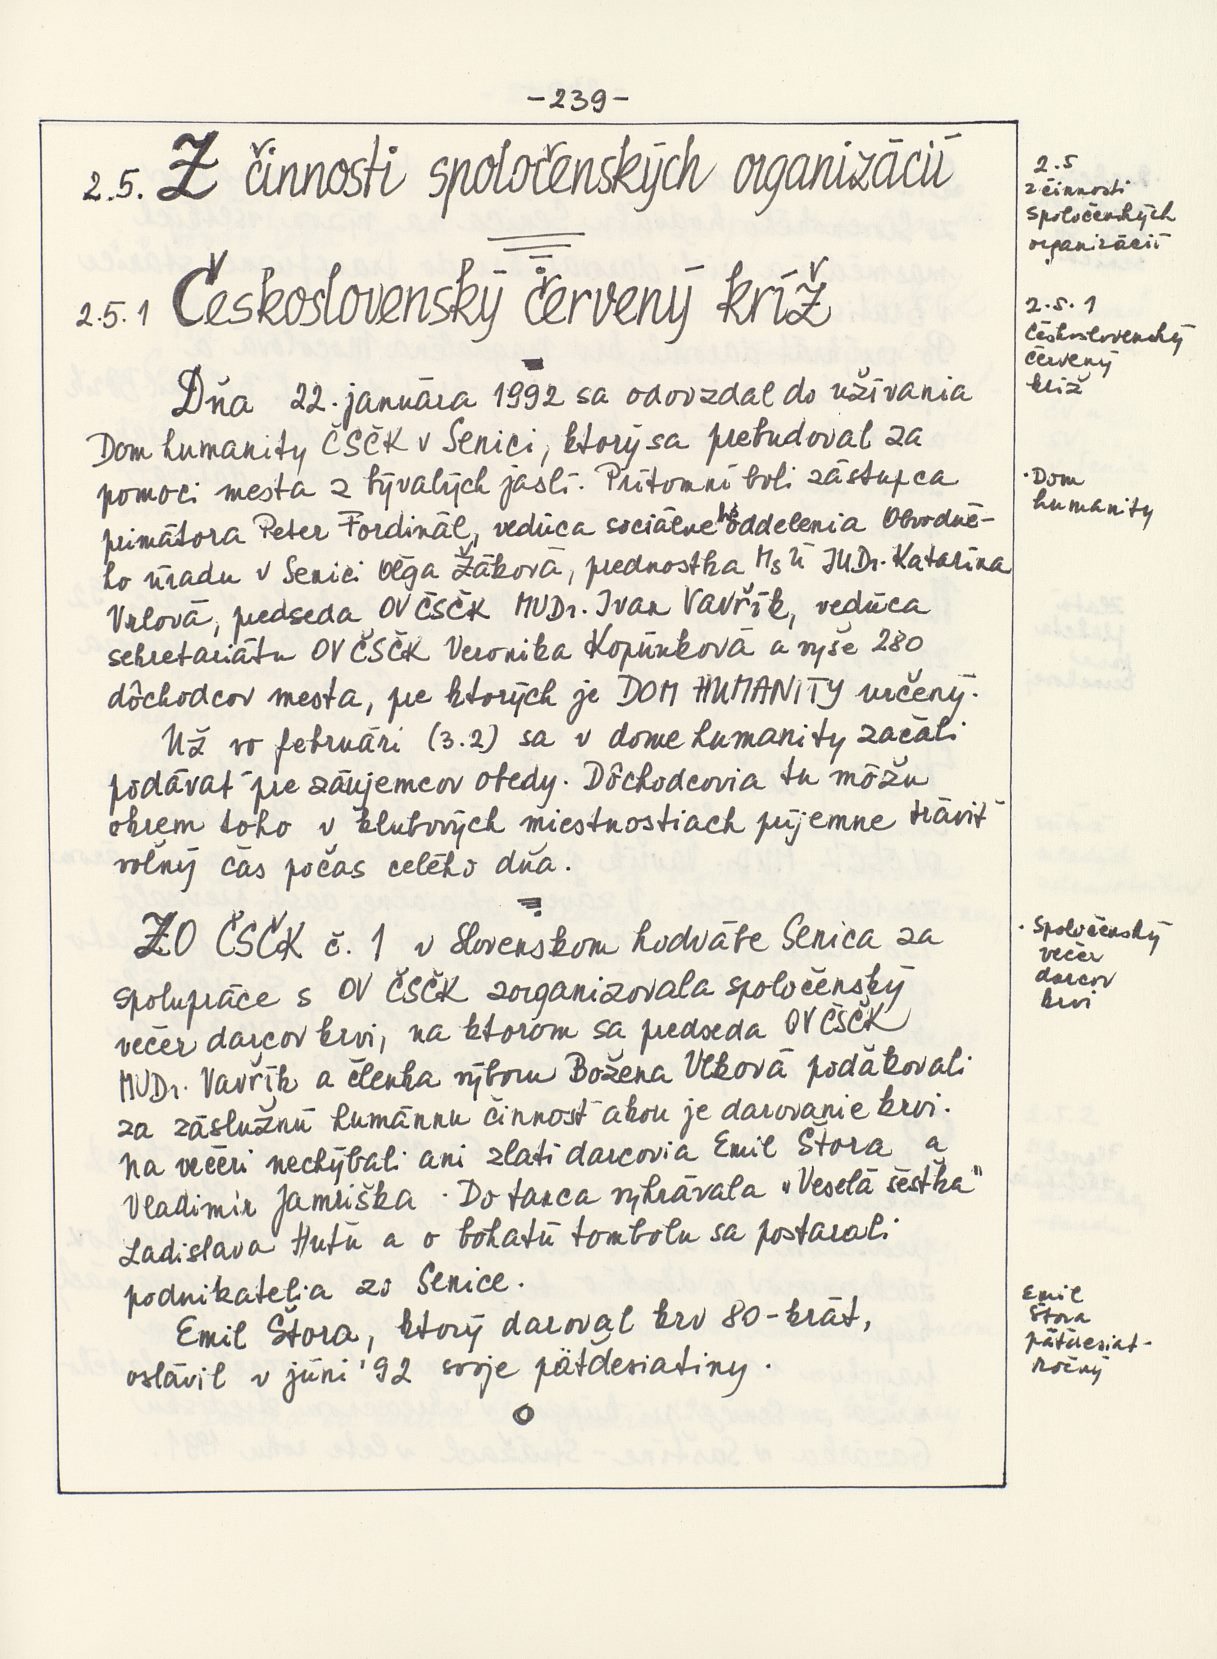 -239-
2.5. Z činnosti spoločenských organizácií
2.5.1 Československý červený kríž
Dňa 22. januára 1992 sa odovzdal do užívania
Dom humanity ČSČK v Senici, ktorý sa prebudoval za
pomoci mesta z bývalých jaslí. Prítomní boli zástupca
primátora Peter Fordinál, vedúca sociálneho oddelenia Obvodné-
ho úradu v Senici Oľga Žáková, prednostka MsÚ JUDr. Katarína
Vrlová, predseda OV ČSČK MUDr. Ivan Vavřík, vedúca
sekretariátu OV ČSČK Veronika Kopúnková a vyše 280
dôchodcov mesta, pre ktorých je DOM HUMANITY určený.
Už vo februári (3.2) sa v dome humanity začali
podávať pre záujemcov obedy. Dôchodcovia tu môžu
okrem toho v klubových miestnostiach príjemne tráviť
voľný čas počas celého dňa.
ZO ČSČK č. 1 v Slovenskom hodvábe Senica za
spolupráce s OV ČSČK zorganizovala spoločenský
večer darcov krvi, na ktorom sa predseda OV ČSČK
MUDr. Vavřík a členka výboru Božena Vlková poďakovali
za záslužnú humánnu činnosť akou je darovanie krvi.
Na večeri nechýbali ani zlatí darcovia Emil Štora a
Vladimír Jamriška. Do tanca vyhrávala "Veselá šestka"
Ladislava Hutú a o bohatú tombolu sa postarali
podnikatelia zo Senice.
Emil Štora, ktorý daroval krv 80-krát,
oslávil v júni '92 svoje päťdesiatiny.
2.5
z činnosti
spoločenských
organizácií
2.5.1
Československý
červený
kríž
· Dom
humanity
· Spoločenský
večer
darcov
krvi
Emil
Štora
päťdesiat-
ročný